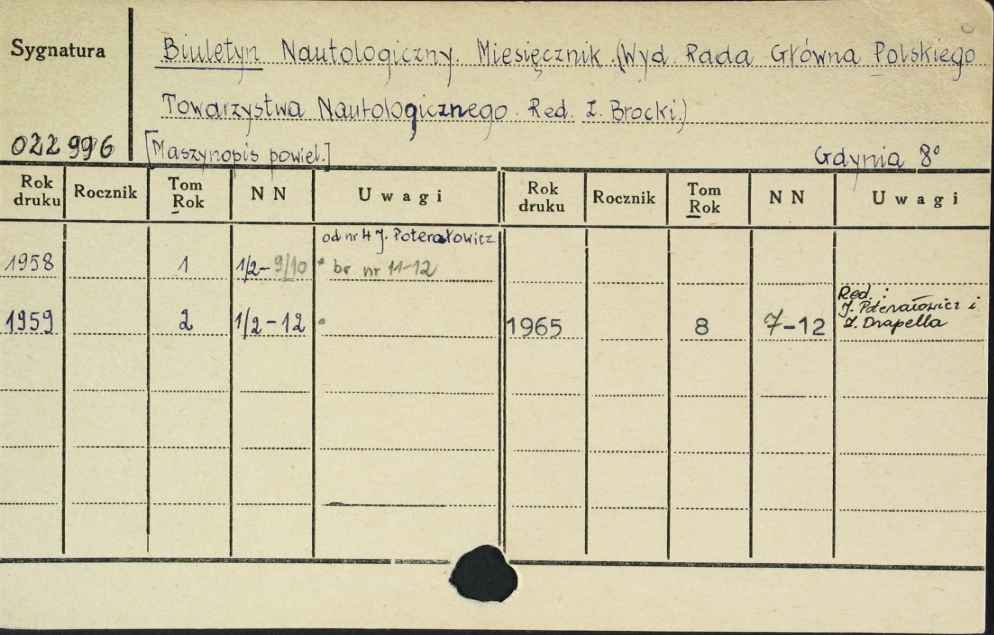 Sygnatura
Biuletyn Nautologiczny. Miesięcznik. (Wyd. Rada Główna Polskiego
Towarzystwa Nautologicznego. Red. Z. Brocki.)
022 996
[Maszynopis powiel.]
Gdynia 8°
Rok druku Rocznik Tom Rok N N Uwagi Rok druku Rocznik Tom Rok N N Uwagi
od nr 4 J. Poterałowicz
1958 1 1/2-9/10 * br nr 11-12
1959 2 1/2-12 *
Red.:
J. Poterałowicz i
Z. Drapella
1965 8 7-12